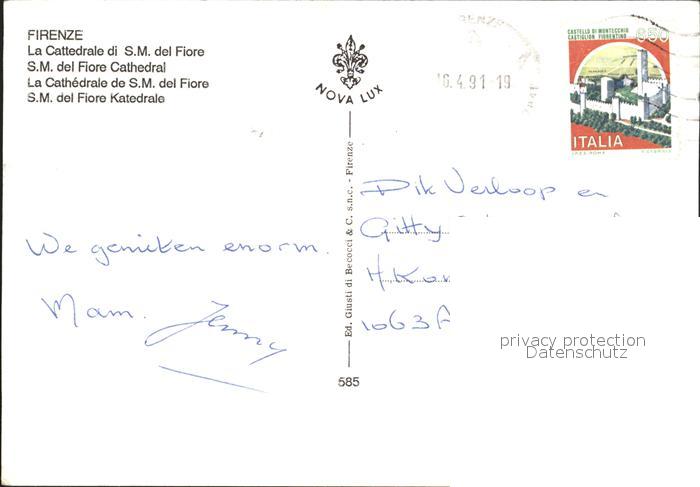 FIRENZE
La Cattedrale di S.M. del Fiore
S.M. del Fiore Cathedral
La Cathédrale de S.M. del Fiore
S.M. del Fiore Katedrale
NOVA LUX
FIRENZE
16.4.91-19
CASTELLO DI MONTECCHIO
CASTIGLION FIORENTINO
650
ITALIA
We genieten enorm.
Mam. Jenny
Ed. Giusti di Becocci & C. s.n.c. - Firenze
585
Dik Verloop en
Gitty
H Kor
1063A
privacy protection
Datenschutz